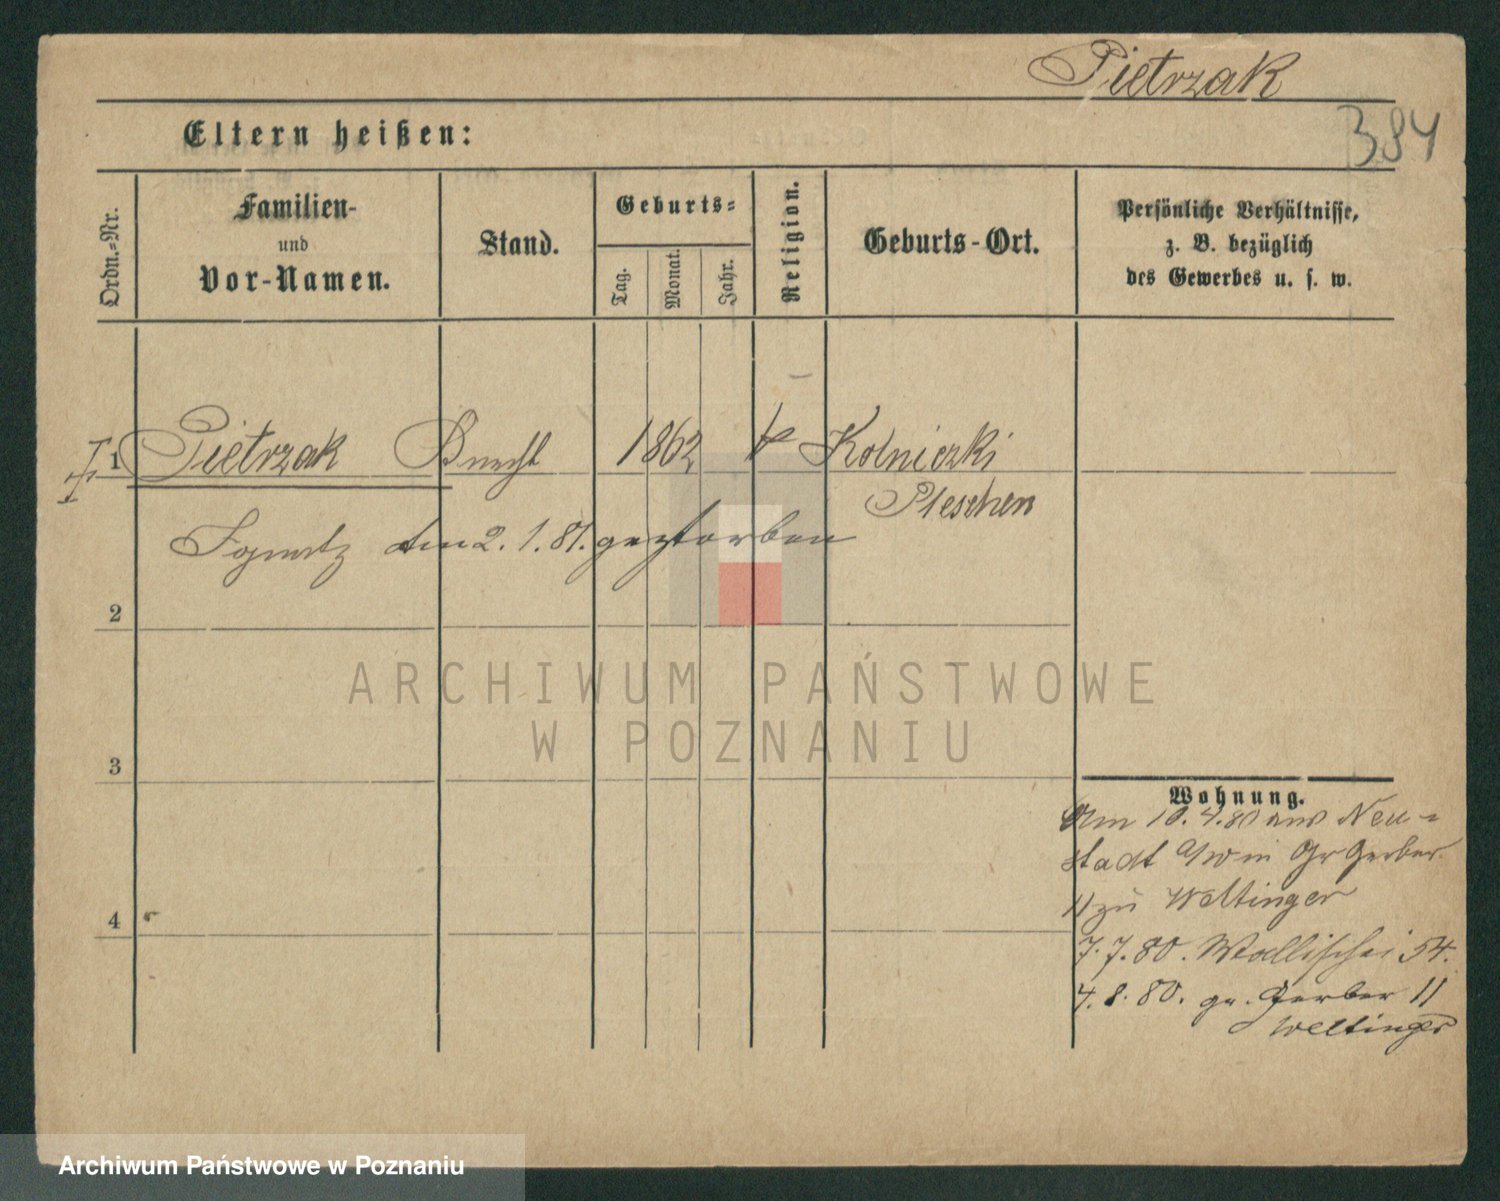 Pietrzak
384
Eltern heißen:
Ordn.-Nr.
Familien-
und
Vor-Namen.
Stand.
Geburts-
Tag.
Monat.
Jahr.
Religion.
Geburts-Ort.
Persönliche Verhältnisse,
z. B. bezüglich
des Gewerbes u. s. w.
1 Pietrzak Knecht 1862 k Kolniczki
Pleschen
Ignatz am 2. 1. 81. gestorben
2
3
4
Wohnung.
Am 10. 4. 80 aus Neu-
stadt a/W in Gr Gerber
11 zu Weltinger
7. 7. 80. Wallischei 54.
4. 8. 80. gr. Gerber 11
Weltinger
ARCHIWUM PAŃSTWOWE
W POZNANIU
Archiwum Państwowe w Poznaniu